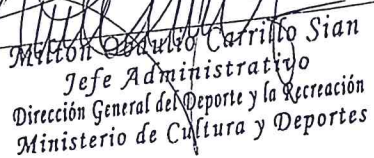 Milton Obdulio Carrillo Sian
Jefe Administrativo
Dirección General del Deporte y la Recreación
Ministerio de Cultura y Deportes